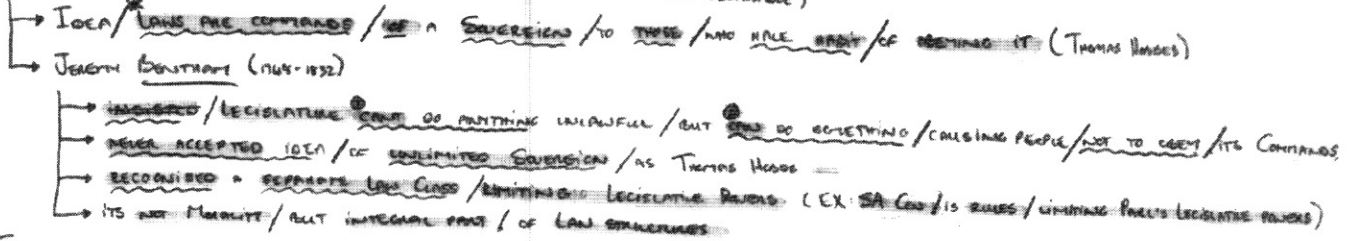 → IDEA / LAWS ARE COMMANDS / OF A SOVEREIGN / TO THOSE / WHO HAVE HABIT / OF OBEYING IT (THOMAS HOBBES)
→ JEREMY BENTHAM (1748-1832)
→ INSISTED / LEGISLATURE CANT DO ANYTHING UNLAWFUL / BUT CAN DO SOMETHING / CAUSING PEOPLE / NOT TO OBEY / ITS COMMANDS
→ NEVER ACCEPTED IDEA / OF UNLIMITED SOVEREIGN / AS THOMAS HOBBS
→ RECOGNISED A SEPARATE LAW CLASS / LIMITING LEGISLATIVE POWERS (EX: SA CON / IS RULES / LIMITING PARL'S LEGISLATIVE POWERS)
→ ITS NOT MORALITY / BUT INTEGRAL PART / OF LAW STRUCTURES